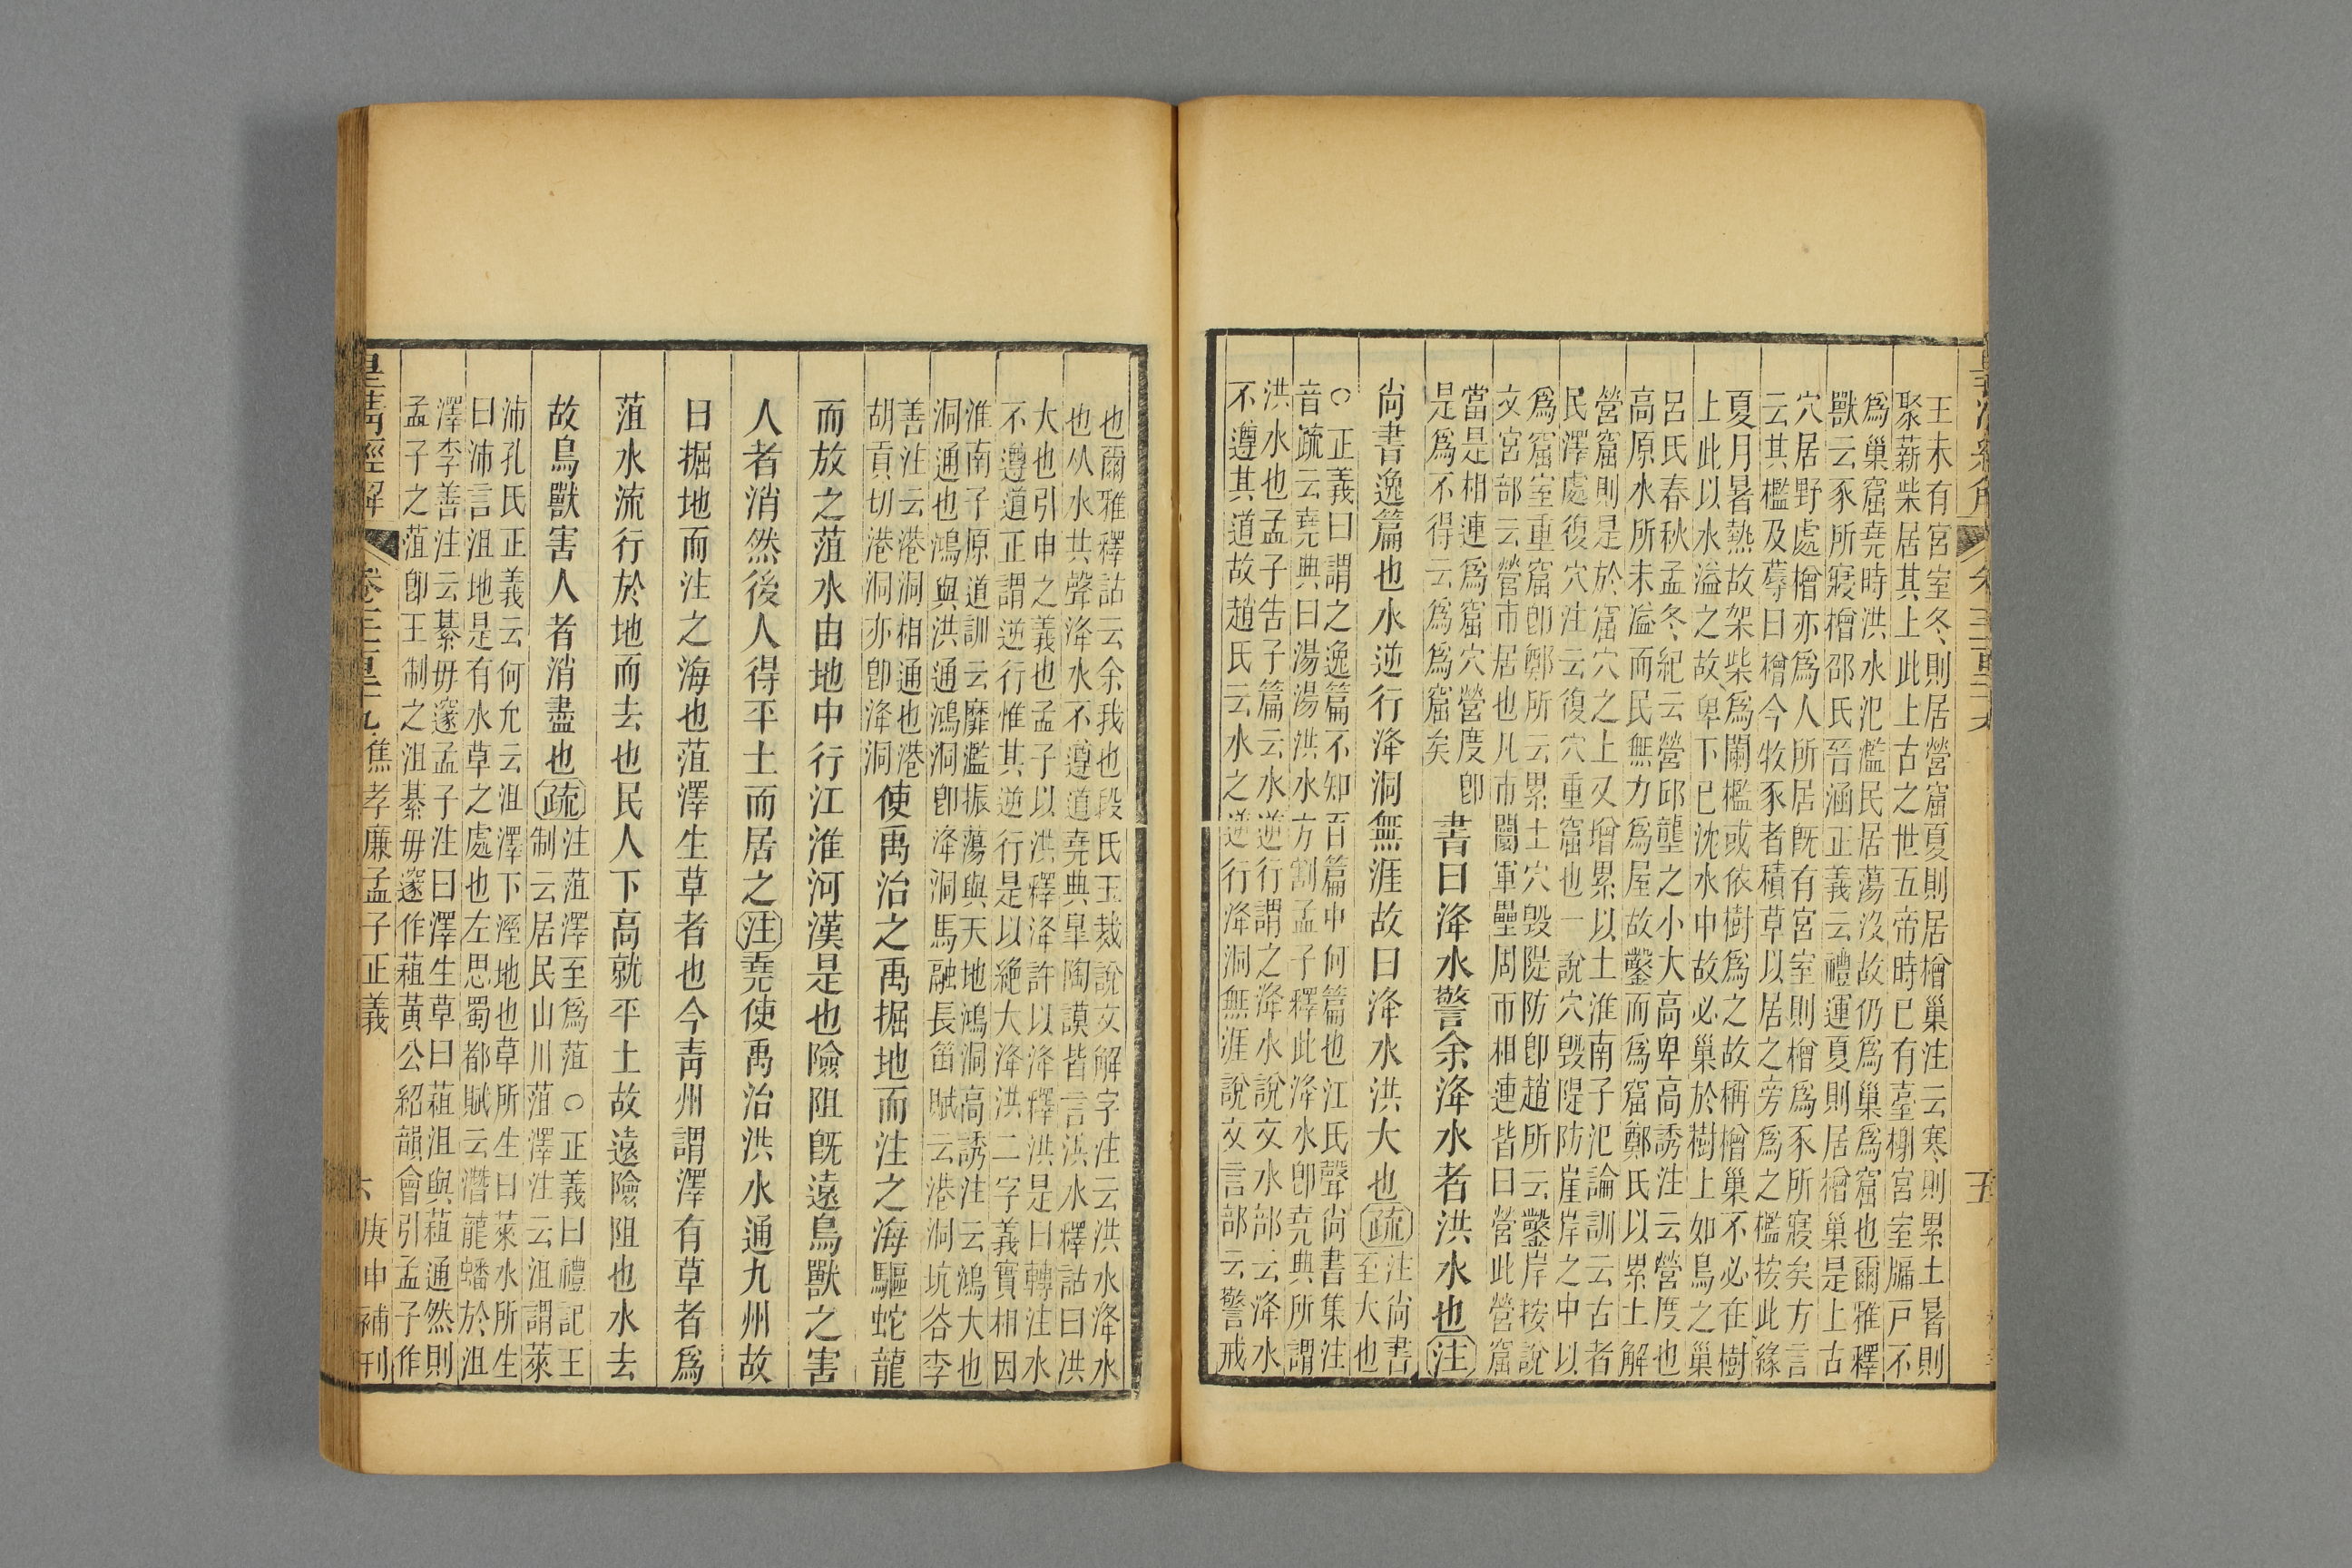 王未有宮室冬則居營窟夏則居橧巢注云寒則累土暑則
聚薪柴居其上此上古之世五帝時已有臺榭宮室牖戶不
爲巢窟堯時洪水氾濫民居蕩沒故仍爲巢爲窟也爾雅釋
獸云豕所寢橧邵氏晉涵正義云禮運夏則居橧巢是上古
穴居野處橧亦爲人所居既有宮室則橧爲豕所寢矣方言
云其檻及蓐曰橧今牧豕者積草以居之旁爲之檻按此緣
夏月暑熱故架柴爲闌檻或依樹爲之故稱橧巢不必在樹
上此以水溢之故卑下已沈水中故必巢於樹上如鳥之巢
呂氏春秋孟冬紀云營邱壟之小大高卑高誘注云營度也
高原水所未溢而民無力爲屋故鑿而爲窟鄭氏以累土解
營窟則是於窟穴之上又增累以土淮南子氾論訓云古者
民澤處復穴注云復穴重窟也一說穴毀隄防崖岸之中以
爲窟室重窟卽鄭所云累土穴毀隄防卽趙所云鑿岸按說
文宮部云營市居也凡市闤軍壘周帀相連皆曰營此營窟
當是相連爲窟穴營度卽
是爲不得云爲爲窟矣
書曰洚水警余洚水者洪水也注
尚書逸篇也水逆行洚洞無涯故曰洚水洪大也疏
注尚書
至大也
○正義曰謂之逸篇不知百篇中何篇也江氏聲尚書集注
音疏云堯典曰湯湯洪水方割孟子釋此洚水卽堯典所謂
洪水也孟子告子篇云水逆行謂之洚水說文水部云洚水
不遵其道故趙氏云水之逆行洚洞無涯說文言部云警戒
也爾雅釋詁云余我也段氏玉裁說文解字注云洪水洚水
也从水共聲洚水不遵道堯典皐陶謨皆言洪水釋詁曰洪
大也引申之義也孟子以洪釋洚許以洚釋洪是曰轉注水
不遵道正謂逆行惟其逆行是以絕大洚洪二字義實相因
淮南子原道訓云靡濫振蕩與天地鴻洞高誘注云鴻大也
洞通也鴻與洪通鴻洞卽洚洞馬融長笛賦云港洞坑谷李
善注云港洞相通也港
胡貢切港洞亦卽洚洞
使禹治之禹掘地而注之海驅蛇龍
而放之菹水由地中行江淮河漢是也險阻旣遠鳥獸之害
人者消然後人得平土而居之注堯使禹治洪水通九州故
曰掘地而注之海也菹澤生草者也今青州謂澤有草者爲
菹水流行於地而去也民人下高就平土故遠險阻也水去
故鳥獸害人者消盡也疏
注菹澤至爲菹○正義曰禮記王
制云居民山川菹澤注云沮謂萊
沛孔氏正義云何允云沮澤下溼地也草所生曰萊水所生
曰沛言沮地是有水草之處也左思蜀都賦云潛龍蟠於沮
澤李善注云綦毋邃孟子注曰澤生草曰菹沮與菹通然則
孟子之菹卽王制之沮綦毋邃作蒩黃公紹韻會引孟子作
皇清經解 卷三百十九 焦孝廉孟子正義 六 庚申補刊